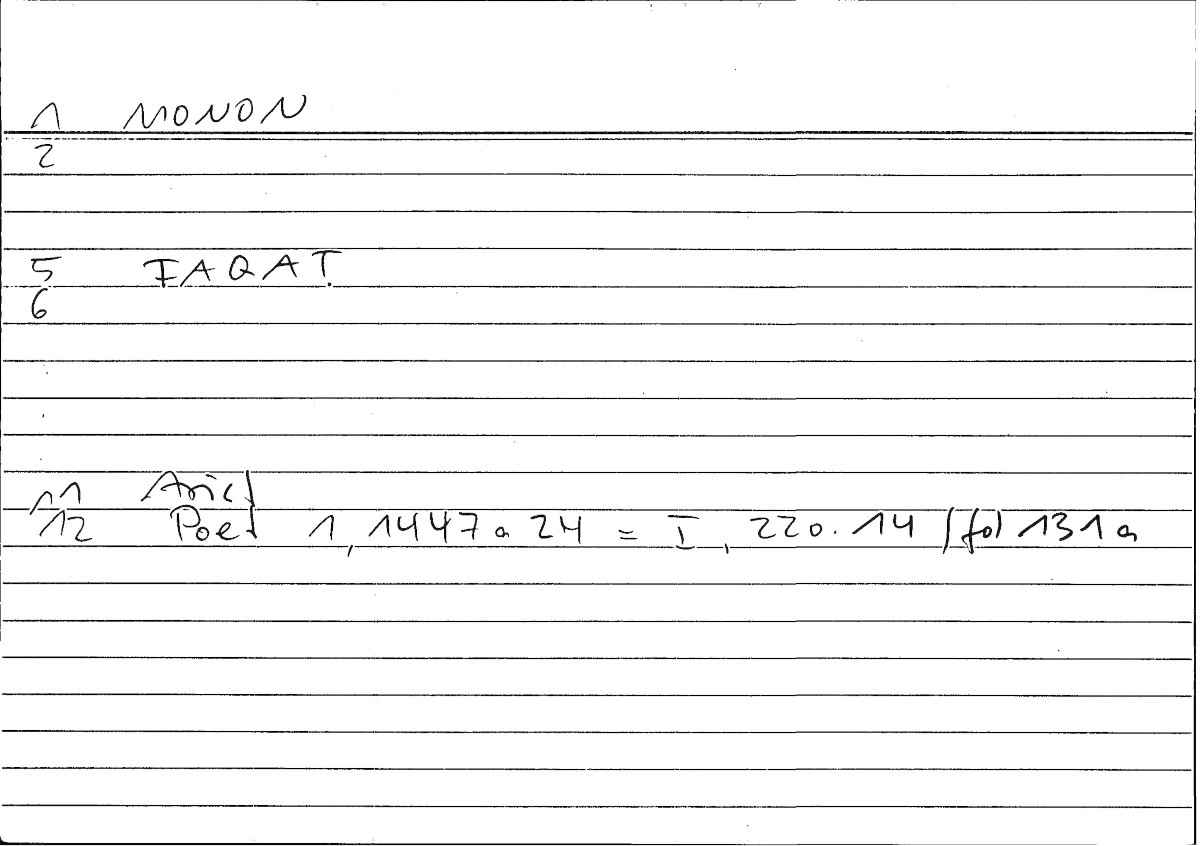 1 MONON
2
5 FAQAṬ
6
11 Arist
12 Poet 1, 1447a 24 = I, 220.14 / fol 131a